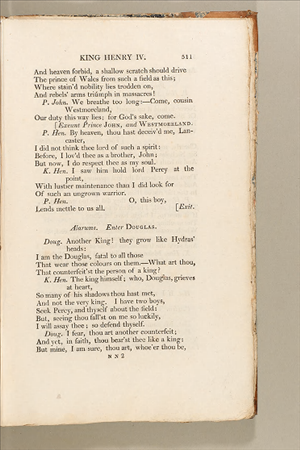 KING HENRY IV. 511
And heaven forbid, a shallow scratch should drive
The prince of Wales from such a field as this;
Where stain'd nobility lies trodden on,
And rebels' arms triúmph in massacres!
P. John. We breathe too long:—Come, cousin
Westmoreland,
Our duty this way lies; for God's sake, come.
[Exeunt Prince JOHN, and WESTMORELAND.
P. Hen. By heaven, thou hast deceiv'd me, Lan-
caster,
I did not think thee lord of such a spirit:
Before, I lov'd thee as a brother, John;
But now, I do respect thee as my soul.
K. Hen. I saw him hold lord Percy at the
point,
With lustier maintenance than I did look for
Of such an ungrown warrior.
P. Hen. O, this boy,
Lends mettle to us all. [Exit.
Alarums. Enter DOUGLAS.
Doug. Another King! they grow like Hydras'
heads:
I am the Douglas, fatal to all those
That wear those colours on them.—What art thou,
That counterfeit'st the person of a king?
K. Hen. The king himself; who, Douglas, grieves
at heart,
So many of his shadows thou hast met,
And not the very king. I have two boys,
Seek Percy, and thyself about the field:
But, seeing thou fall'st on me so luckily,
I will assay thee; so defend thyself.
Doug. I fear, thou art another counterfeit;
And yet, in faith, thou bear'st thee like a king:
But mine, I am sure, thou art, whoe'er thou be,
N N 2